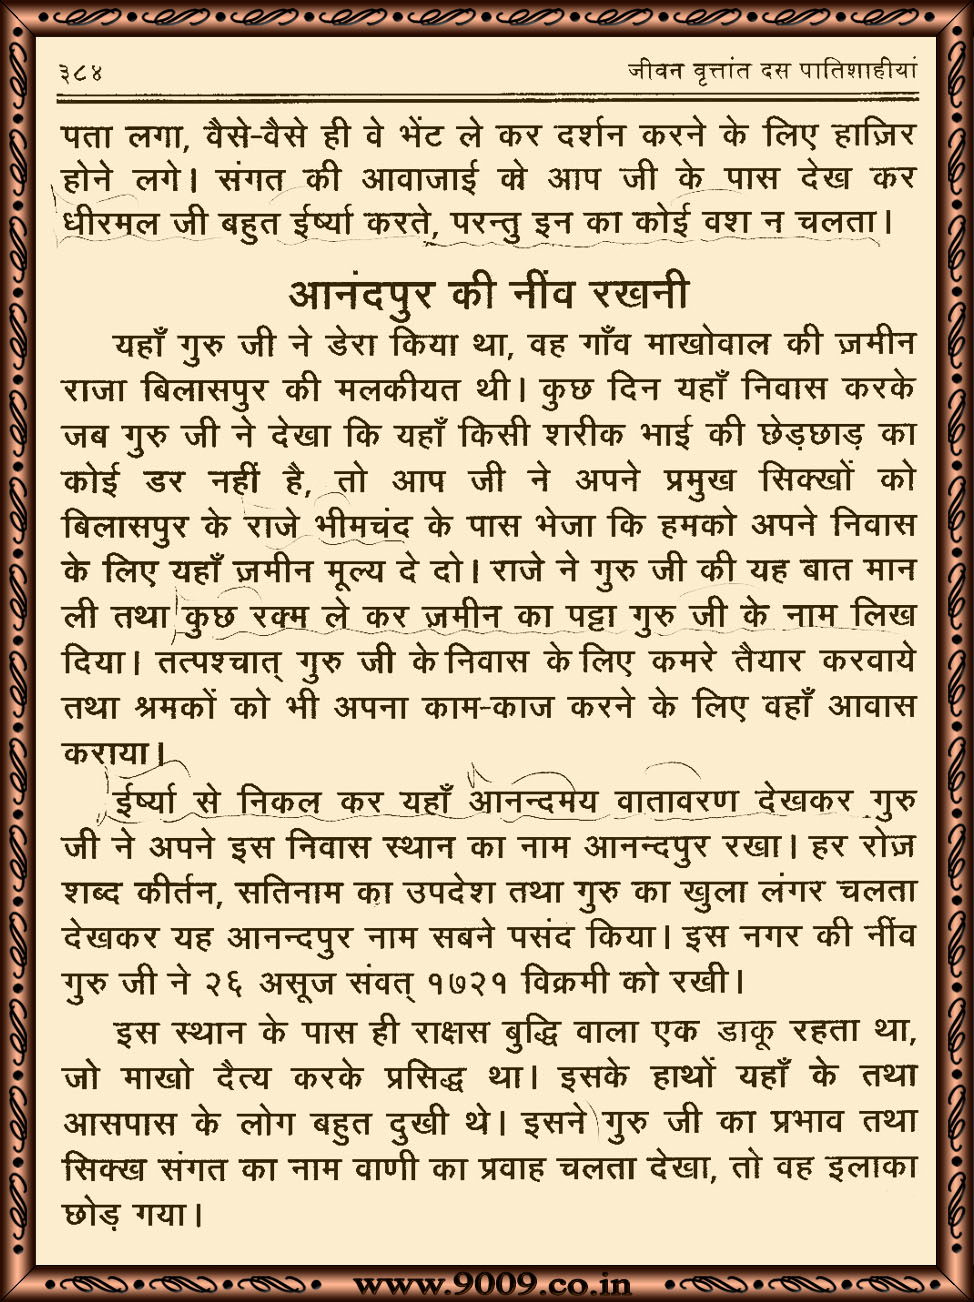 ३८४
जीवन वृत्तांत दस पातिशाहीयां
पता लगा, वैसे-वैसे ही वे भेंट ले कर दर्शन करने के लिए हाज़िर
होने लगे। संगत की आवाजाई को आप जी के पास देख कर
धीरमल जी बहुत ईर्ष्या करते, परन्तु इन का कोई वश न चलता।
आनंदपुर की नींव रखनी
यहाँ गुरु जी ने डेरा किया था, वह गाँव माखोवाल की ज़मीन
राजा बिलासपुर की मलकीयत थी। कुछ दिन यहाँ निवास करके
जब गुरु जी ने देखा कि यहाँ किसी शरीक भाई की छेड़छाड़ का
कोई डर नहीं है, तो आप जी ने अपने प्रमुख सिक्खों को
बिलासपुर के राजे भीमचंद के पास भेजा कि हमको अपने निवास
के लिए यहाँ ज़मीन मूल्य दे दो। राजे ने गुरु जी की यह बात मान
ली तथा कुछ रक्म ले कर ज़मीन का पट्टा गुरु जी के नाम लिख
दिया। तत्पश्चात् गुरु जी के निवास के लिए कमरे तैयार करवाये
तथा श्रमकों को भी अपना काम-काज करने के लिए वहाँ आवास
कराया।
ईर्ष्या से निकल कर यहाँ आनन्दमय वातावरण देखकर गुरु
जी ने अपने इस निवास स्थान का नाम आनन्दपुर रखा। हर रोज़
शब्द कीर्तन, सतिनाम का उपदेश तथा गुरु का खुला लंगर चलता
देखकर यह आनन्दपुर नाम सबने पसंद किया। इस नगर की नींव
गुरु जी ने २६ असूज संवत् १७२१ विक्रमी को रखी।
इस स्थान के पास ही राक्षस बुद्धि वाला एक डाकू रहता था,
जो माखो दैत्य करके प्रसिद्ध था। इसके हाथों यहाँ के तथा
आसपास के लोग बहुत दुखी थे। इसने गुरु जी का प्रभाव तथा
सिक्ख संगत का नाम वाणी का प्रवाह चलता देखा, तो वह इलाका
छोड़ गया।
www.9009.co.in